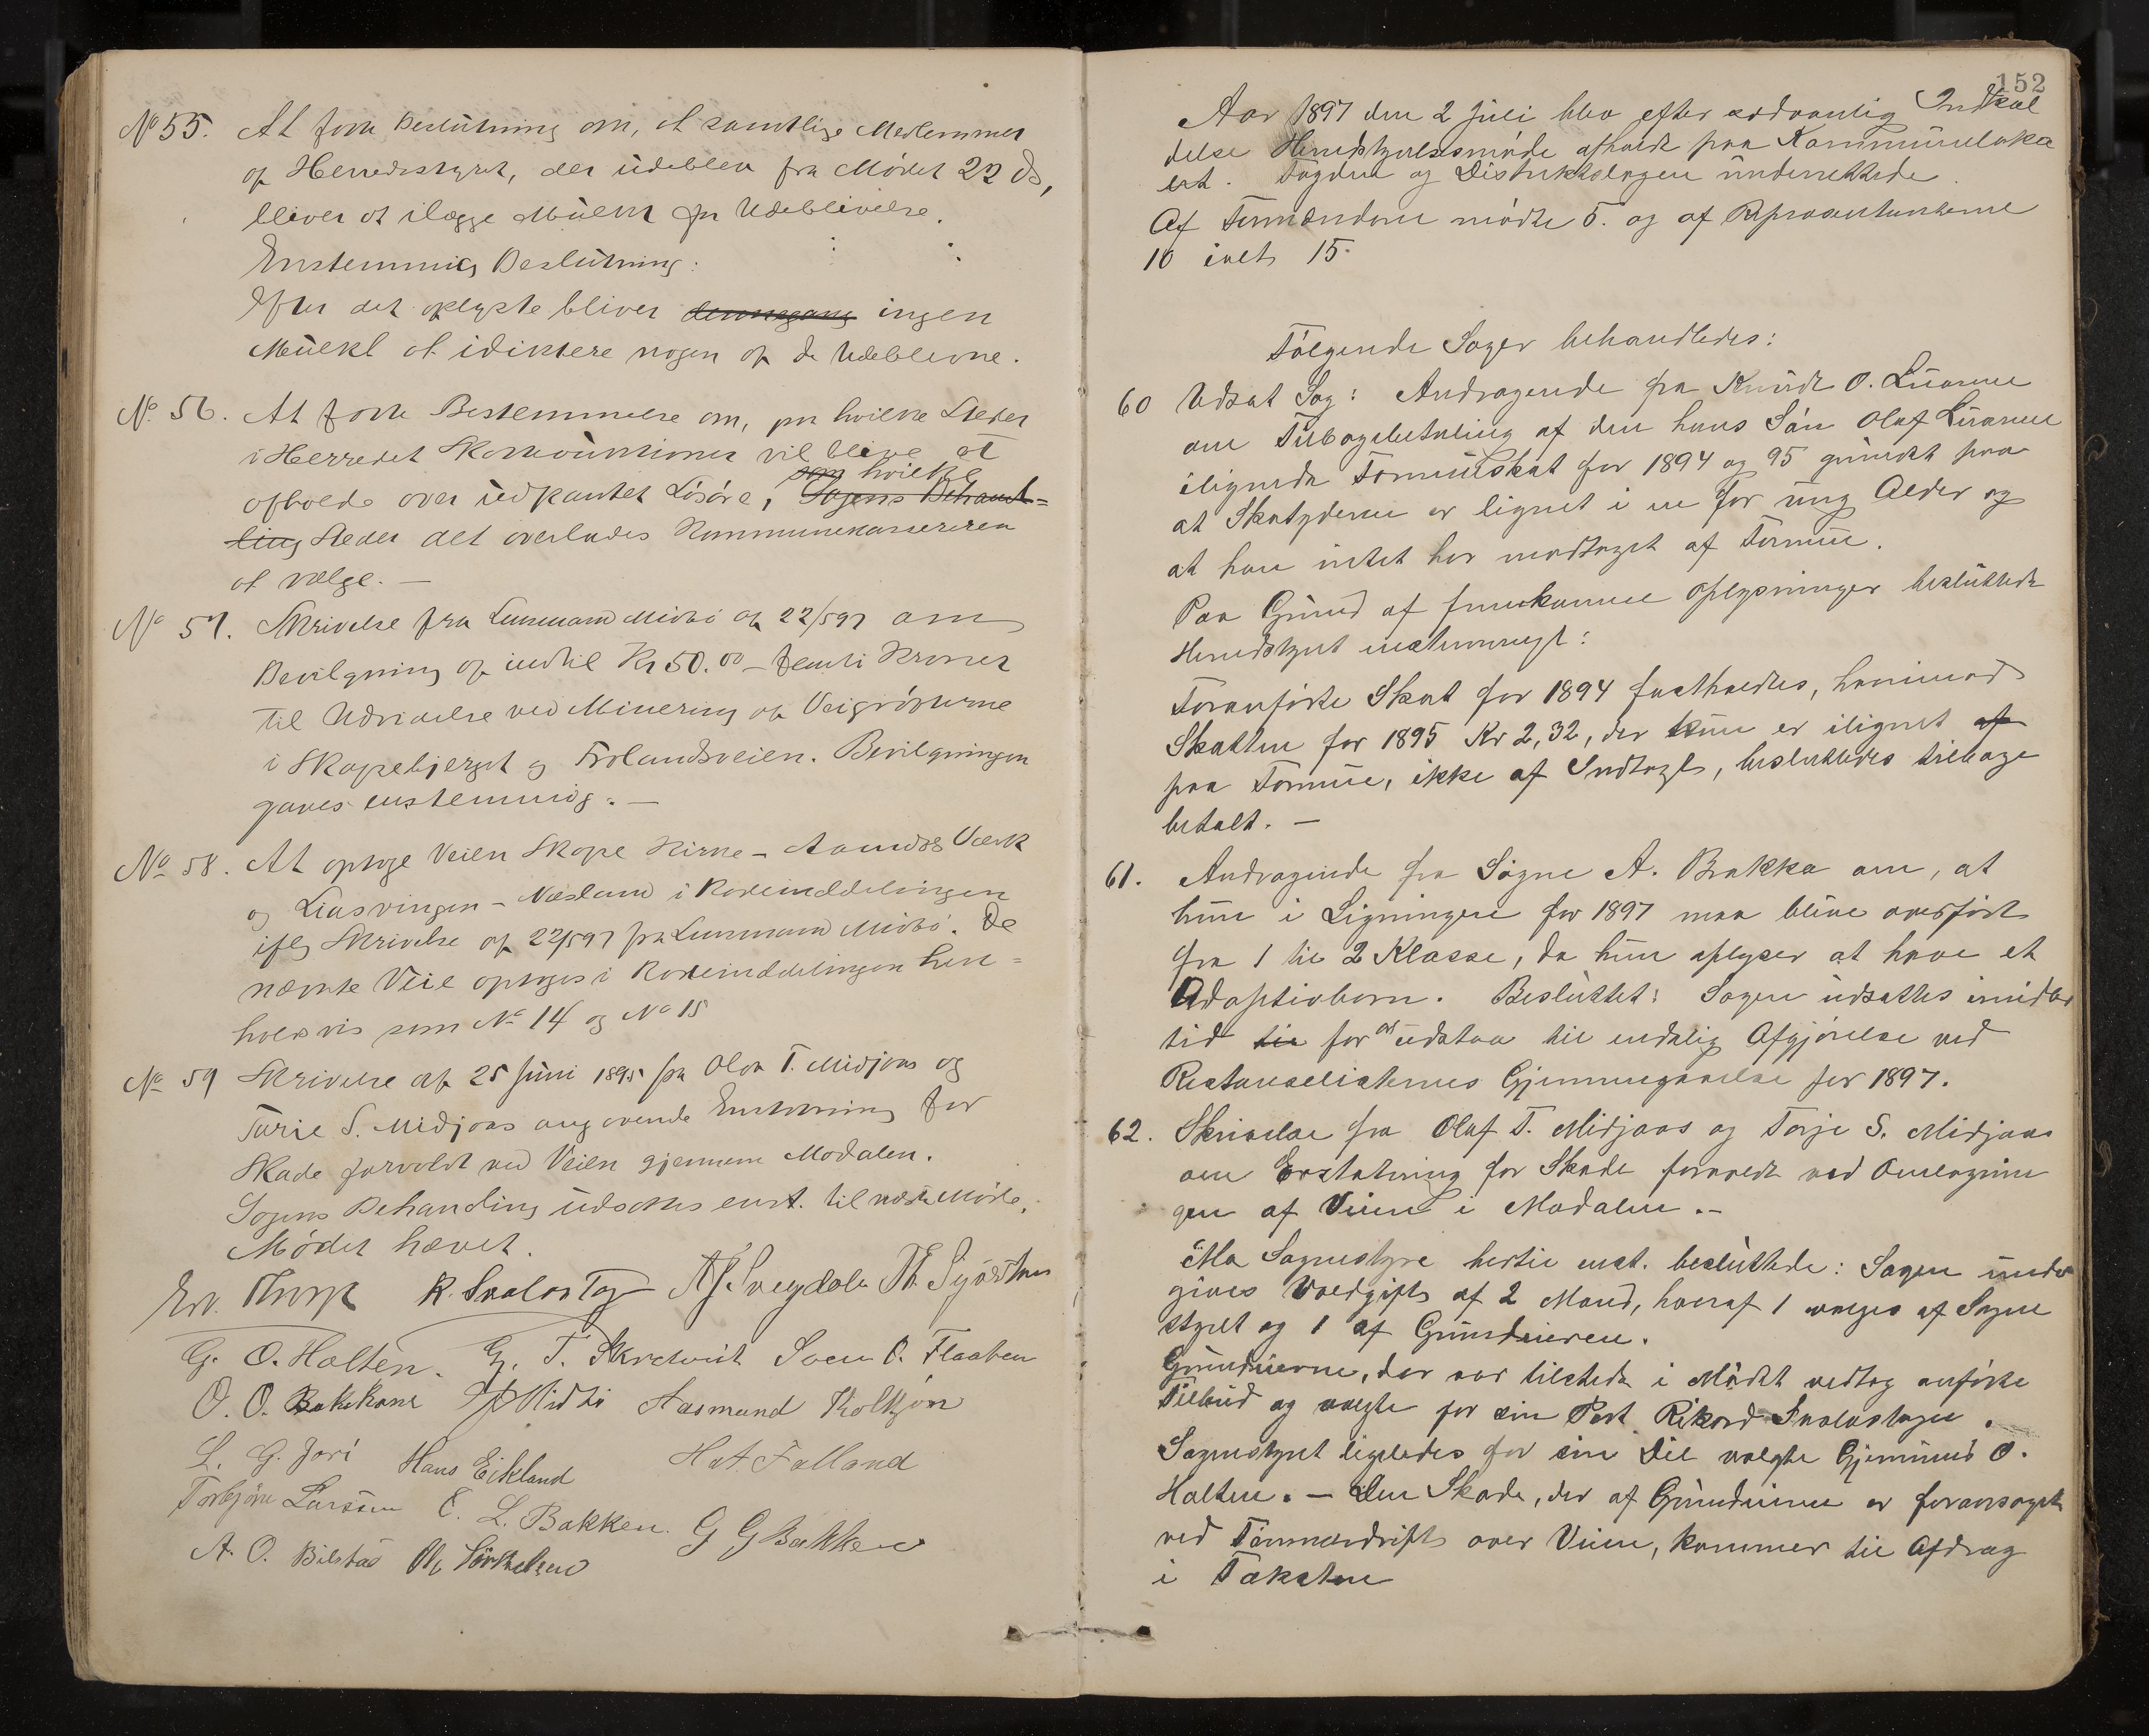 No 55. At fatte Beslutning om, at samtlige Medlemmer
af Herredsstyret, der udeblev fra Mødet 22 ds,
bliver at ilægge Mulkt for Udeblivelse.
Enstemmig Beslutning:
Efter det oplyste bliver dennegang ingen
Mulkt at idiktere nogen af de Udeblevne.
No. 56. At fatte Bestemmelse om, paa hvilke Steder
i Herredet Skatteauktioner vil blive at
som hvilke
afholde over udpantet Løsøre, Sagens Behand=
ling Steder det overlades Kommunekassereren
at vælge. —
No 57. Skrivelse fra Lensmand Midbø af 22/5 97 om
Bevilgning af indtil Kr 50.00 — femti Kroner
til Udvidelse ved Minering af Veigrøfterne
i Skapebjerget og Frolandsveien. Bevilgningen
gaves enstemmig. —
No 58. At optage Veien Skape Kirke — Aamdals Værk
og Liasvingen — Næsland i Rodeinddelingen
iflg Skrivelse af 22/5 97 fra Lensmand Midbø. De
nævnte Veie optoges i Rodeinddelingen hen=
holdsvis som No 14 og No 15
No 59 Skrivelse af 25 Juni 1895 fra Olav T. Midjaas og
Tarje S. Midjaas angaaende Erstatning for
Skade forvoldt ved Veien gjennem Modalen.
Sagens Behandling udsattes enst. til næste Møde.
Mødet hævet.
R. Svalastog
G. O. Holten. G. T. Sven O. Flaaten
O. O. Bakkane Midbø Aasmund
L. G. Jori Hans Eikland H. A. Falland
Torbjørn Larssen E. L. Bakken. G G Bakken
A. O. Bilstad
152
Aar 1897 den 2 Juli blev efter sedvanlig Indkal
delse Herredstyrelsesmøde afholdt paa Kommuneloka
let. Fogden og Distriktslægen underrettede
Af Formændene mødte 5. og af Repræsentanterne
10 ialt 15.
Følgende Sager behandledes:
60 Udsat Sag: Andragende fra Knudt O.
om Tilbagebetaling af den hans Søn Olaf
ilignede Formueskat for 1894 og 95 grundet paa
at Skatyderen er lignet i en for ung Alder og
at han intet har modtaget af Formue.
Paa Grund af fremkomne Oplysninger besluttede
Herredstyret enstemmigt:
Foranførte Skat for 1894 fastholdtes, hvorimod
Skatten for 1895 Kr 2,32, der kun er ilignet af
paa Formue, ikke af Indtægt, besluttedes tilbage
betalt. —
61. Andragende fra Signe A. Brakka om, at
hun i Ligningen for 1897 maa blive overført
fra 1 til 2 Klasse, da hun oplyser at have et
Adoptivbarn. Besluttet: Sagen udsattes imidler
tid til for at udstaa til endelig Afgjørelse ved
Restanselisternes Gjennemgaaelse for 1897.
62. Skrivelse fra Olaf T. Midjaas og Torje S. Midjaas
om Erstatning for Skade forvoldt ved Omlægnin
gen af Veien i Modalen. –
Mo Sognestyre hertil enst. besluttede: Sagen under
gives Voldgift af 2 Mand, hvoraf 1 vælges af Sogne
styret og 1 af Grundeieren.
Grundeierne, der var tilstede i Mødet vedtog anførte
Tilbud og valgte for sin Part Rikard Svalastogen.
Sognestyret ligeledes for sin Del valgte Gjermund O.
Holten. — Den Skade, der af Grundeierne er foraarsaget
ved Tømmerdrift over Veien, kommer til Afdrag
i Taksten